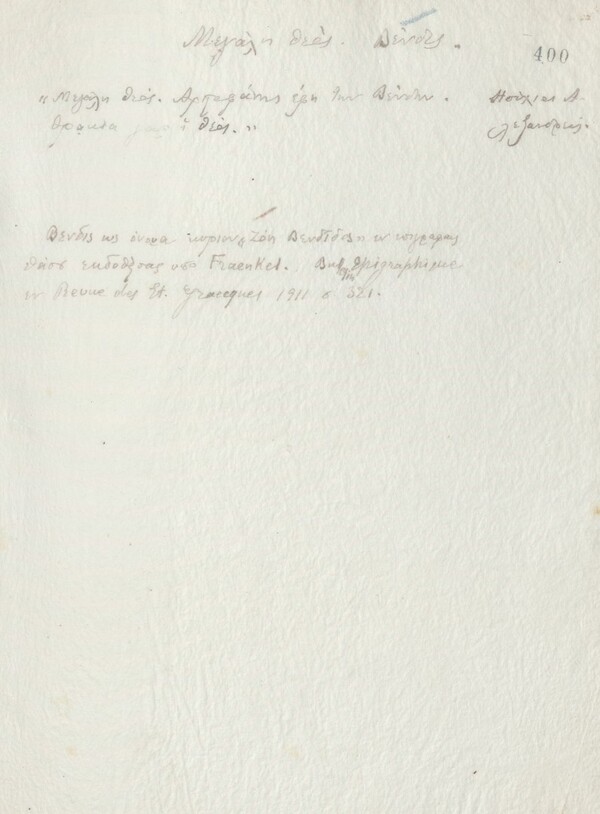 Μεγάλη θεός. Βένδις.
400
"Μεγάλη θεός. Αριστοφάνης έφη την Βένδιν. Ησύχιος Α-
θρακία θεός." λεξανδρεύς.
Βενδις ως όνομα κύριον, Ζάη Βενδίδος εν επιγραφαις
Θάσου εκδοθείσας υπό Fraenkel. Bul. épigraphique
εν Revue des Et. Grecques 1911 σ 321.